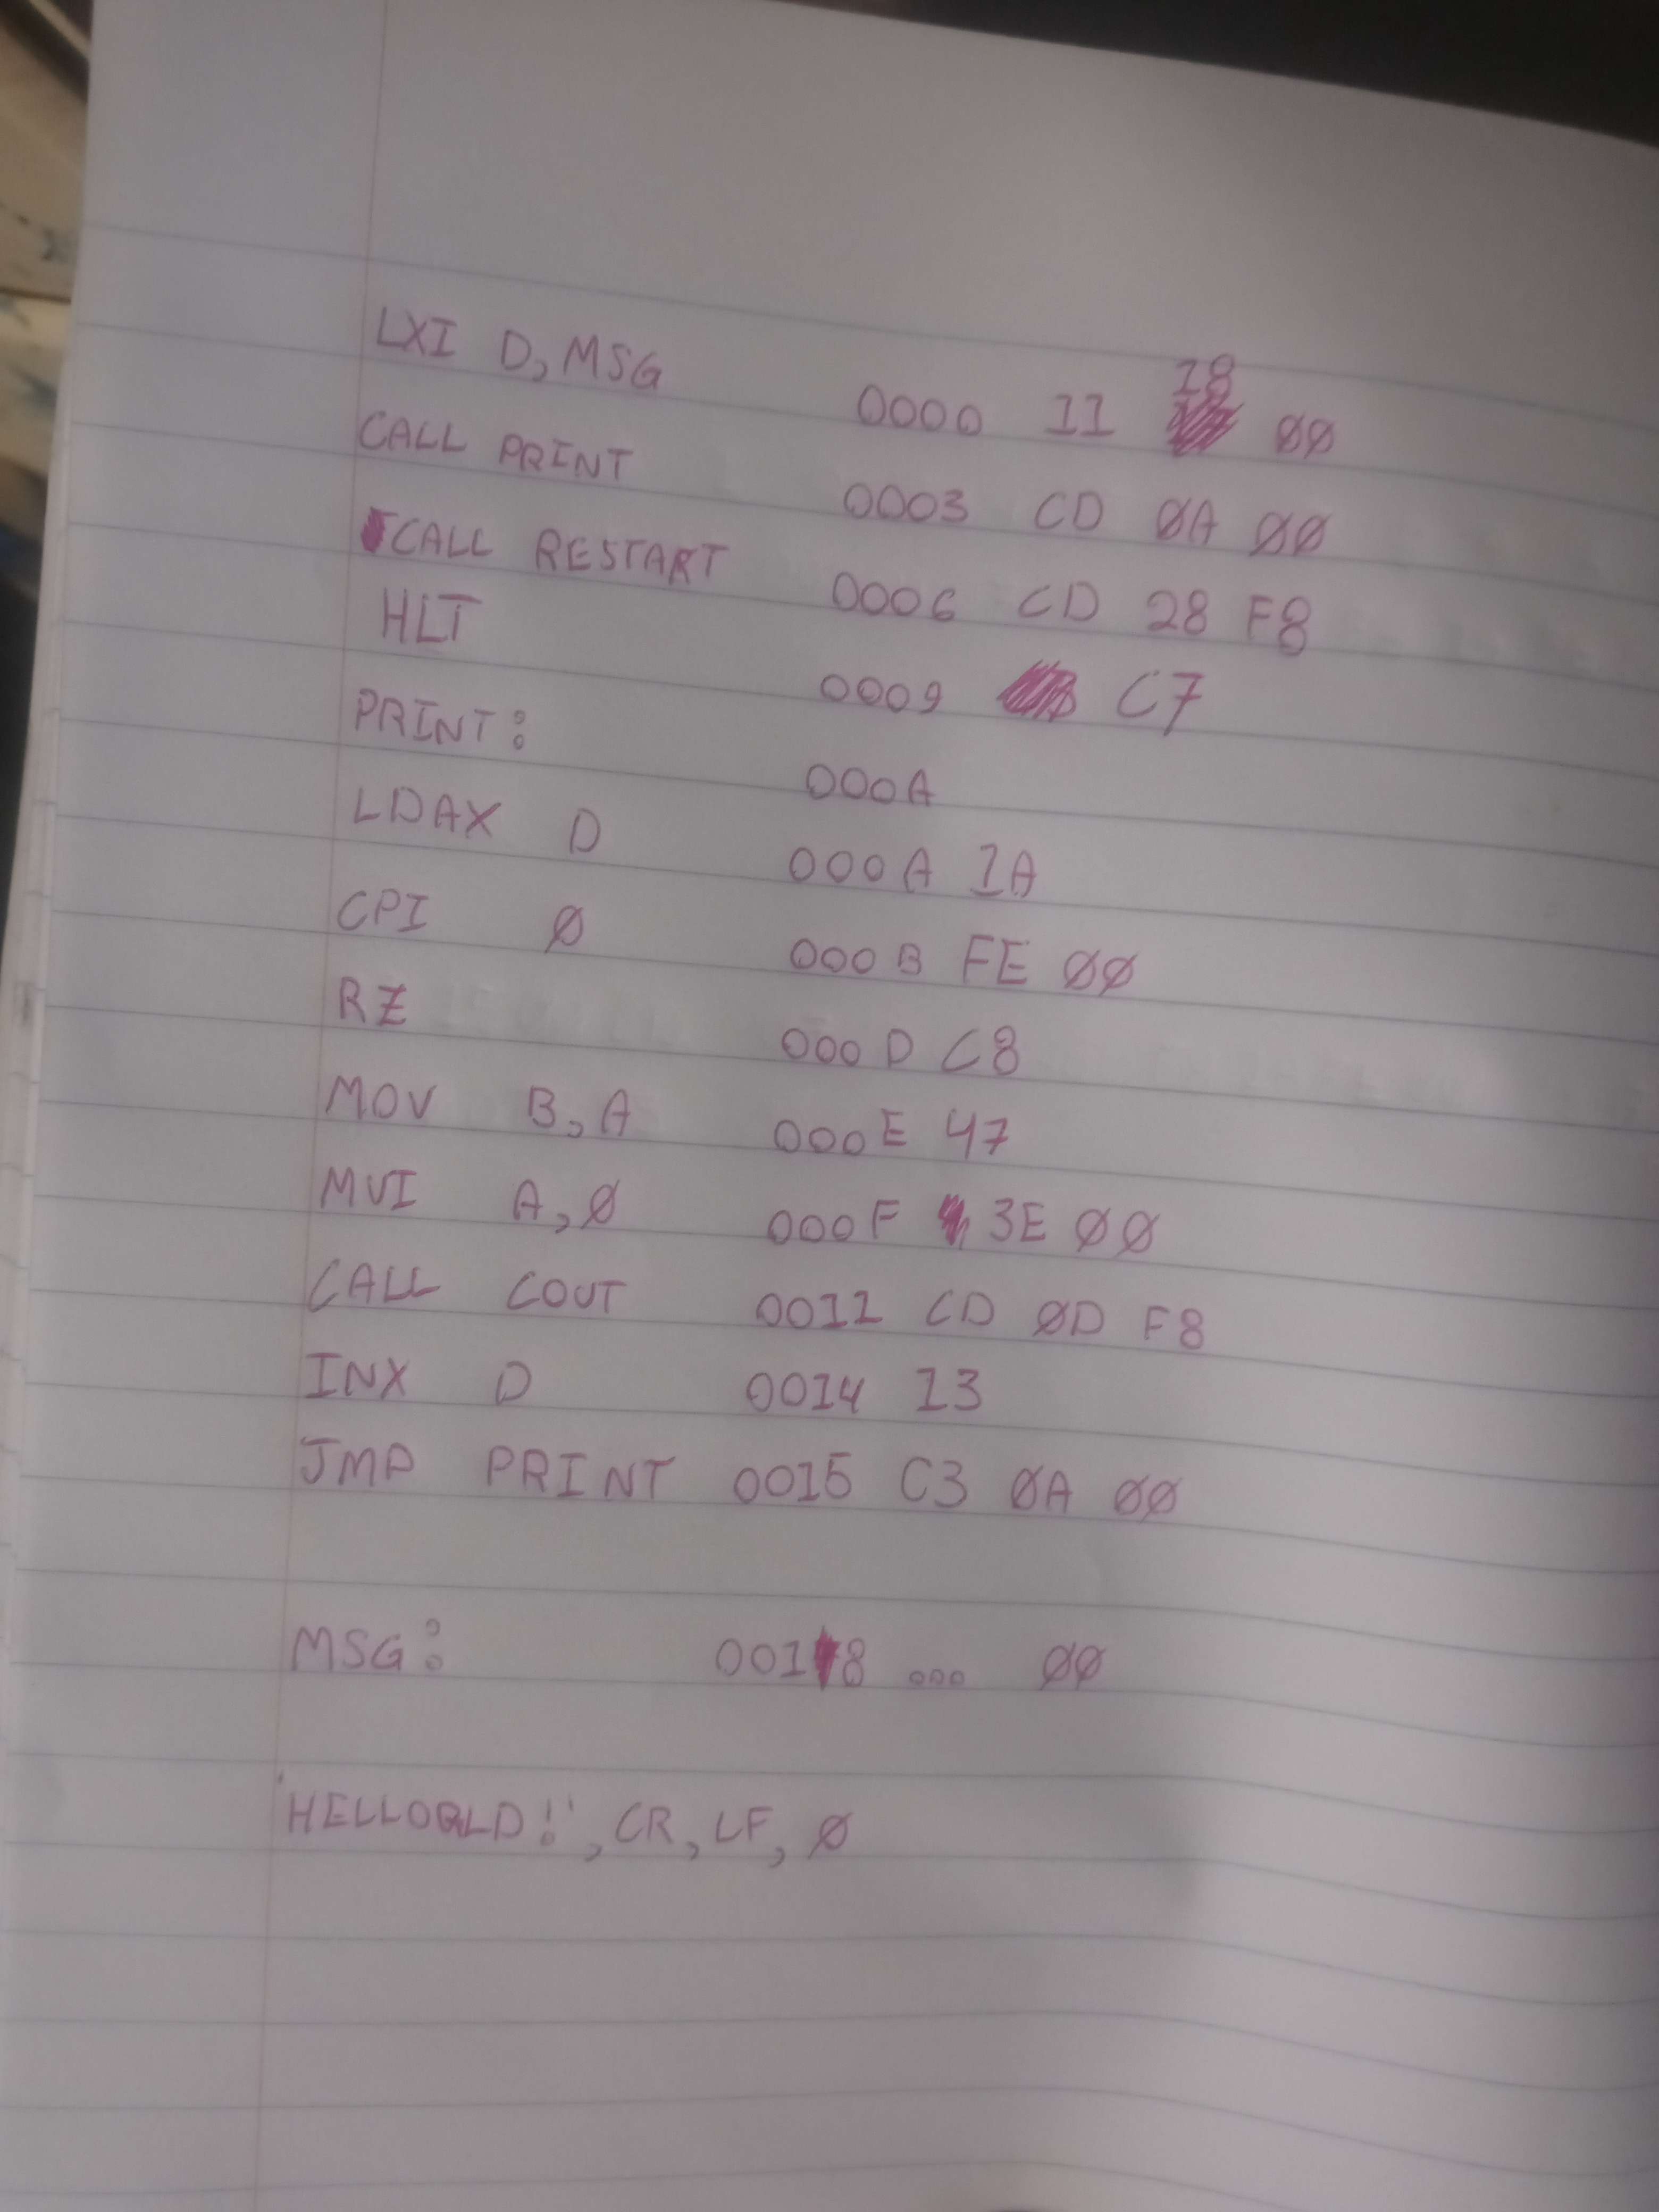 LXI D, MSG 0000 11 18 00
CALL PRINT 0003 CD 0A 00
CALL RESTART 0006 CD 28 F8
HLT 0009 C7
PRINT: 000A
LDAX D 000A 1A
CPI 0 000B FE 00
RZ 000D C8
MOV B, A 000E 47
MVI A, 0 000F 3E 00
CALL COUT 0011 CD 0D F8
INX D 0014 13
JMP PRINT 0015 C3 0A 00
MSG: 0018 ... 00
'HELLORLD!', CR, LF, 0